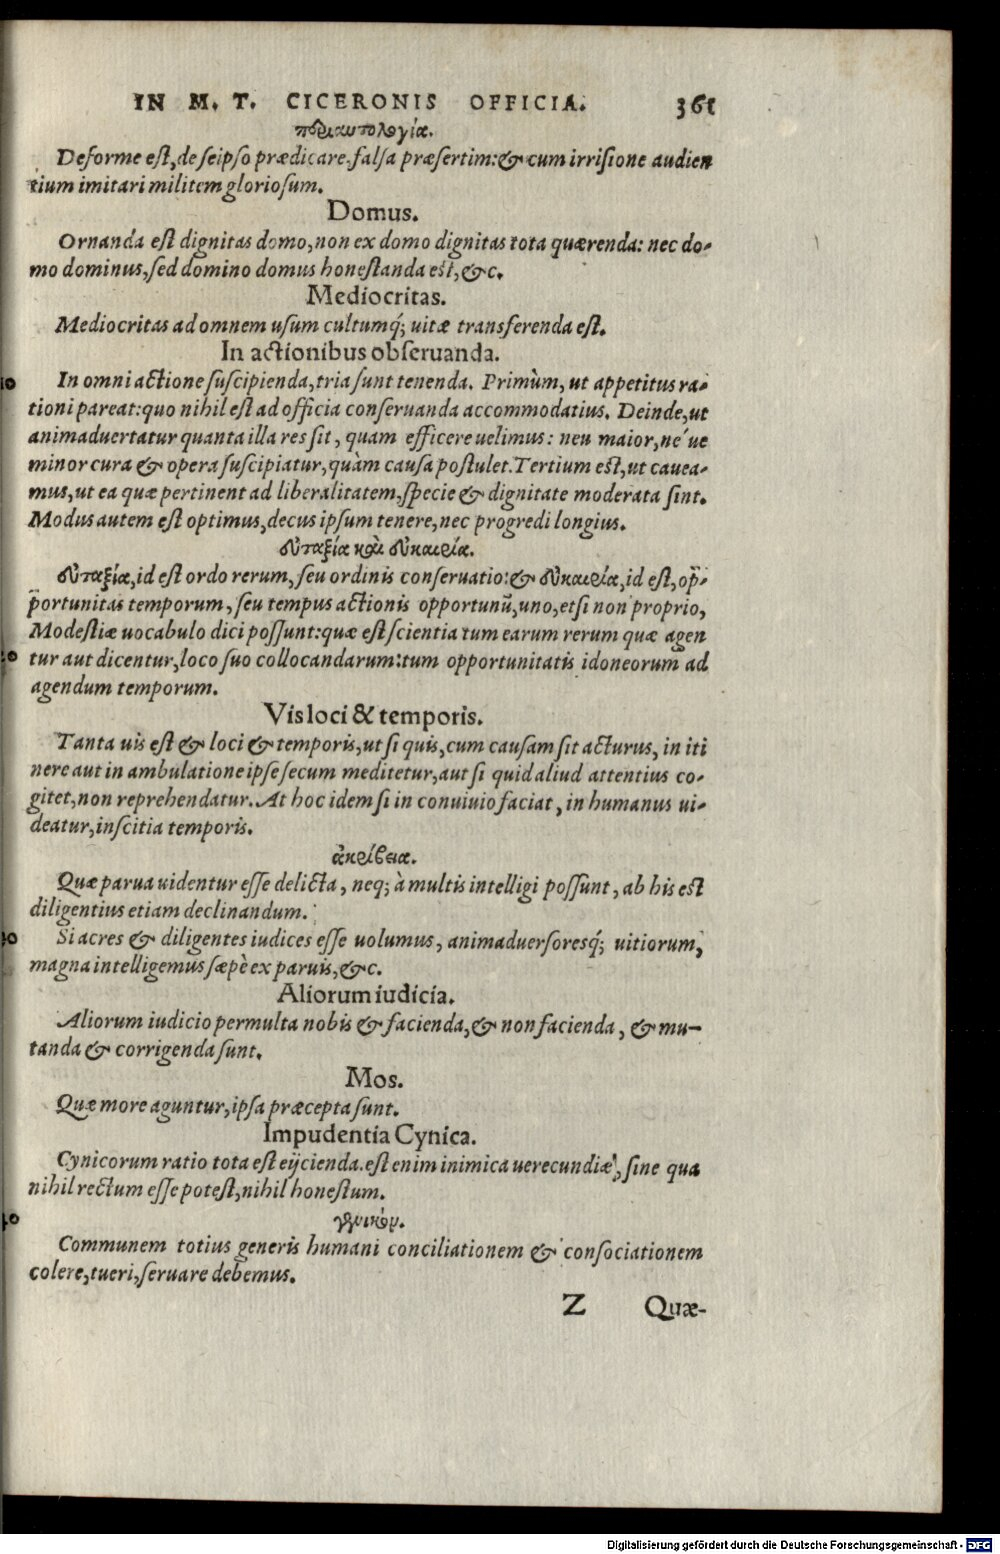 IN M. T. CICERONIS OFFICIA. 361
περιαυτολογία.
Deforme est, de seipso prædicare, falsa præsertim: & cum irrisione audien
tium imitari militem gloriosum.
Domus.
Ornanda est dignitas domo, non ex domo dignitas tota quærenda: nec do-
mo dominus, sed domino domus honestanda est, &c.
Mediocritas.
Mediocritas ad omnem usum cultumq́; uitæ transferenda est.
In actionibus obseruanda.
10 In omni actione suscipienda, tria sunt tenenda. Primùm, ut appetitus ra-
tioni pareat: quo nihil est ad officia conseruanda accommodatius. Deinde, ut
animaduertatur quanta illa res sit, quam efficere uelimus: neu maior, né ue
minor cura & opera suscipiatur, quàm causa postulet. Tertium est, ut cauea-
mus, ut ea quæ pertinent ad liberalitatem, specie & dignitate moderata sint.
Modus autem est optimus, decus ipsum tenere, nec progredi longius.
εὐταξία καὶ εὐκαιρία.
εὐταξία, id est ordo rerum, seu ordinis conseruatio: & εὐκαιρία, id est, op-
portunitas temporum, seu tempus actionis opportunū, uno, etsi non proprio,
Modestiæ uocabulo dici possunt: quæ est scientia tum earum rerum quæ agen
20 tur aut dicentur, loco suo collocandarum: tum opportunitatis idoneorum ad
agendum temporum.
Vis loci & temporis.
Tanta uis est & loci & temporis, ut si quis, cum causam sit acturus, in iti
nere aut in ambulatione ipse secum meditetur, aut si quid aliud attentius co-
gitet, non reprehendatur. At hoc idem si in conuiuio faciat, in humanus ui-
deatur, inscitia temporis.
ἀκρίβεια.
Quæ parua uidentur esse delicta, neq; à multis intelligi possunt, ab his est
diligentius etiam declinandum.
30 Si acres & diligentes iudices esse uolumus, animaduersoresq́; uitiorum,
magna intelligemus sæpè ex paruis, &c.
Aliorum iudicia.
Aliorum iudicio permulta nobis & facienda, & non facienda, & mu-
tanda & corrigenda sunt.
Mos.
Quæ more aguntur, ipsa præcepta sunt.
Impudentia Cynica.
Cynicorum ratio tota est eijcienda. est enim inimica uerecundiæ, sine qua
nihil rectum esse potest, nihil honestum.
40 γενικόν.
Communem totius generis humani conciliationem & consociationem
colere, tueri, seruare debemus.
Z Quæ-
Digitalisierung gefördert durch die Deutsche Forschungsgemeinschaft - DFG